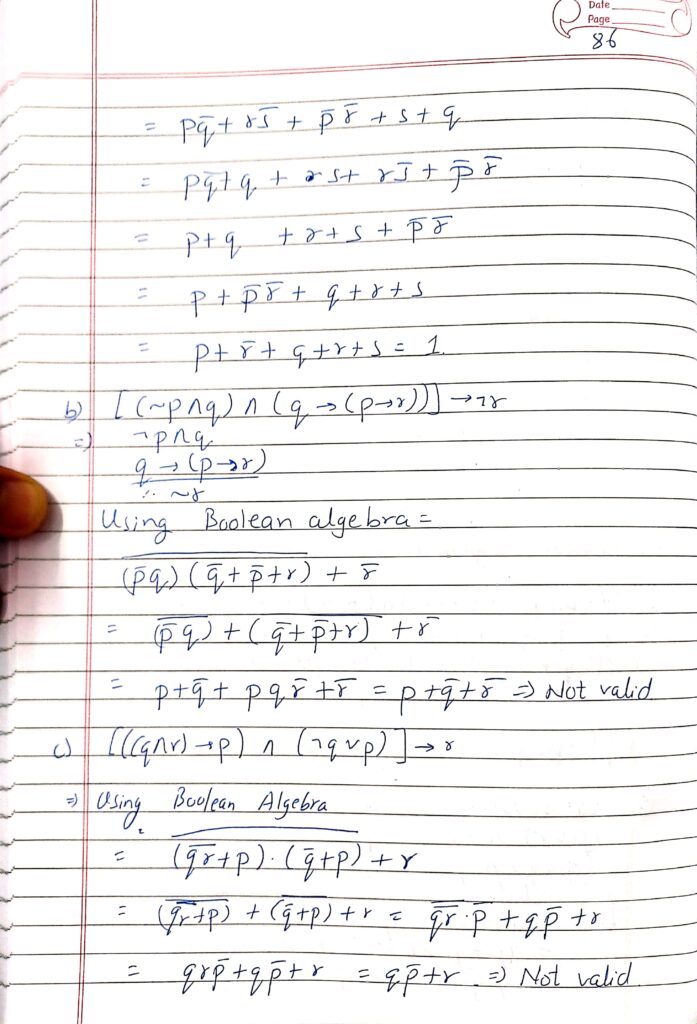 Date
Page
86
= pq̅ + rs̅ + p̅ r̅ + s + q
= pq̅ + q + s + rs̅ + p̅ r̅
= p + q + r + s + p̅ r̅
= p + p̅ r̅ + q + r + s
= p + r̅ + q + r + s = 1.
b) [(~p∧q) ∧ (q → (p→r))] → ¬r
=) ¬p∧q
q → (p→r)
∴ ~r
Using Boolean algebra =
\overline{(p̅q)(q̅ + p̅ + r)} + r̅
= \overline{(p̅ q)} + \overline{(q̅ + p̅ + r)} + r̅
= p + q̅ + p q r̅ + r̅ = p + q̅ + r̅ ⇒ Not valid
c) [((q∧r) → p) ∧ (¬q ∨ p)] → r
⇒ Using Boolean Algebra
= \overline{(\overline{qr} + p) . (q̅ + p)} + r
= \overline{(\overline{qr} + p)} + \overline{(q̅ + p)} + r = \overline{\overline{qr}} . p̅ + q p̅ + r
= q r p̅ + q p̅ + r = q p̅ + r ⇒ Not valid.